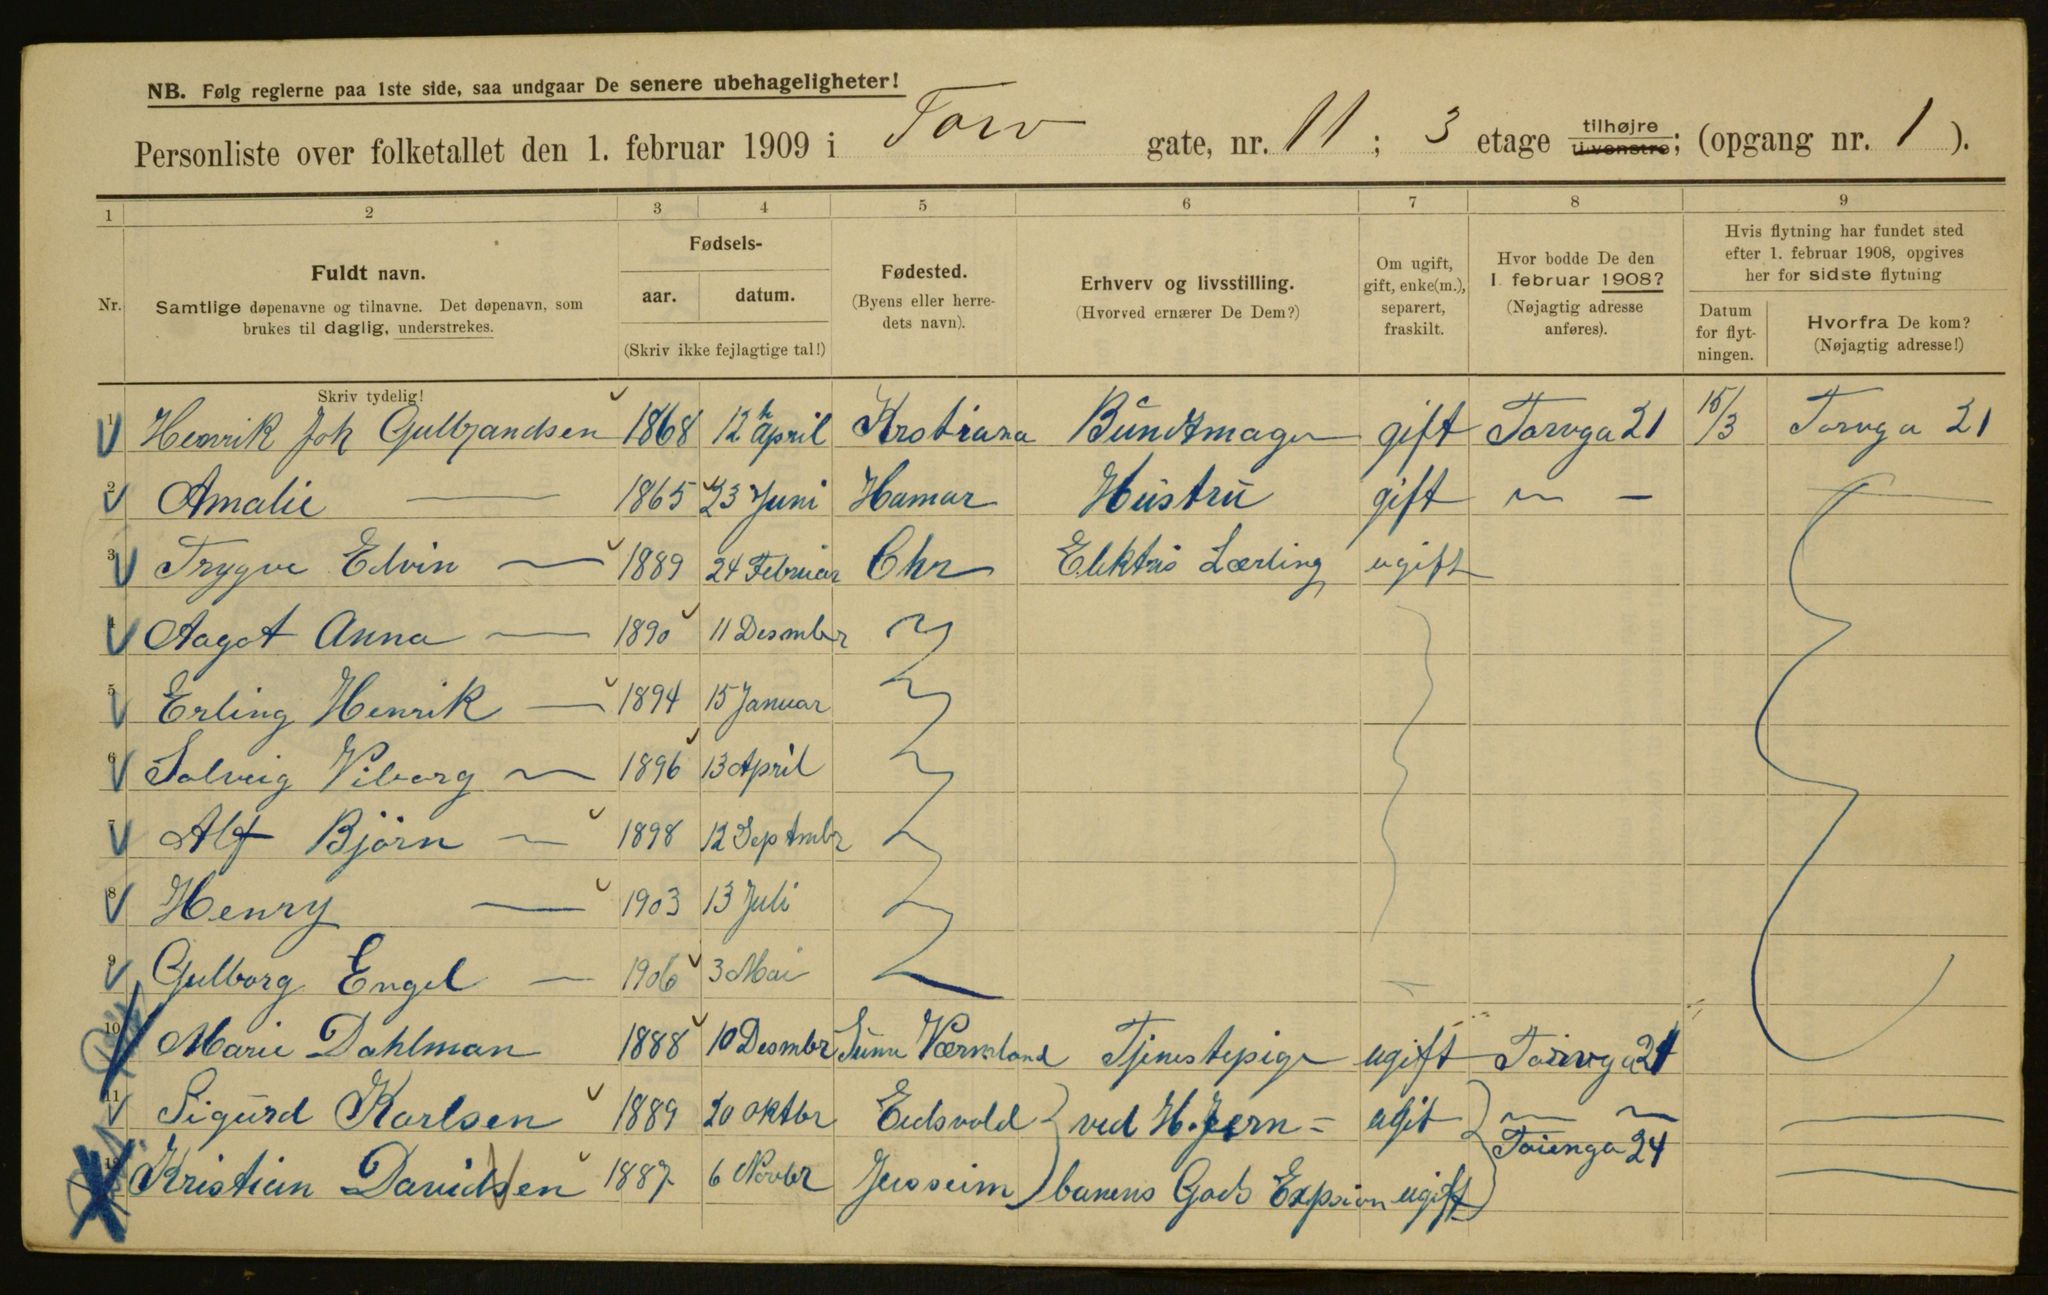 NB. Følg reglerne paa 1ste side, saa undgaar De senere ubehageligheter!
Personliste over folketallet den 1. februar 1909 i Torv gate, nr. 11; 3 etage tilhøjre tilvenstre; (opgang nr. 1).
1 2 3 4 5 6 7 8 9
Nr.
Fuldt navn.
Samtlige døpenavne og tilnavne. Det døpenavn, som
brukes til daglig, understrekes.
Fødsels-
aar. datum.
(Skriv ikke fejlagtige tal!)
Fødested.
(Byens eller herre-
dets navn).
Erhverv og livsstilling.
(Hvorved ernærer De Dem?)
Om ugift,
gift, enke(m.),
separert,
fraskilt.
Hvor bodde De den
1. februar 1908?
(Nøjagtig adresse
anføres).
Hvis flytning har fundet sted
efter 1. februar 1908, opgives
her for sidste flytning
Datum
for flyt-
ningen.
Hvorfra De kom?
(Nøjagtig adresse!)
Skriv tydelig!
1 Henrik Joh Gulbrandsen 1868 12 april Krotiana Bŭndtmager gift Torvga 21 15/3 Torvga 21
2 Amalie — 1865 23 Juni Hamar Hŭstrŭ gift — —
3 Trygve Edvin — 1889 24 Februar Chr Elektris Lærling ugift
4 Aagot Anna — 1890 11 Desmbr
5 Erling Henrik — 1894 15 Januar
6 Solveig Viborg — 1896 13 April
7 Alf Björn — 1898 12 Septmbr
8 Henry — 1903 13 Juli
9 Gulborg Engel — 1906 3 Mai
10 Marie Dahlman 1888 10 Desmbr Sunne Værmland Tjenestepige ugift Torvga 21
11 Sigŭrd Karlsen 1889 20 oktbr Eidsvold ved H. Jern= ugit — —
Toienga 24
12 Kristian Davidsen 1887 6 Novbr Jesseim banens Gods Expsion ugift